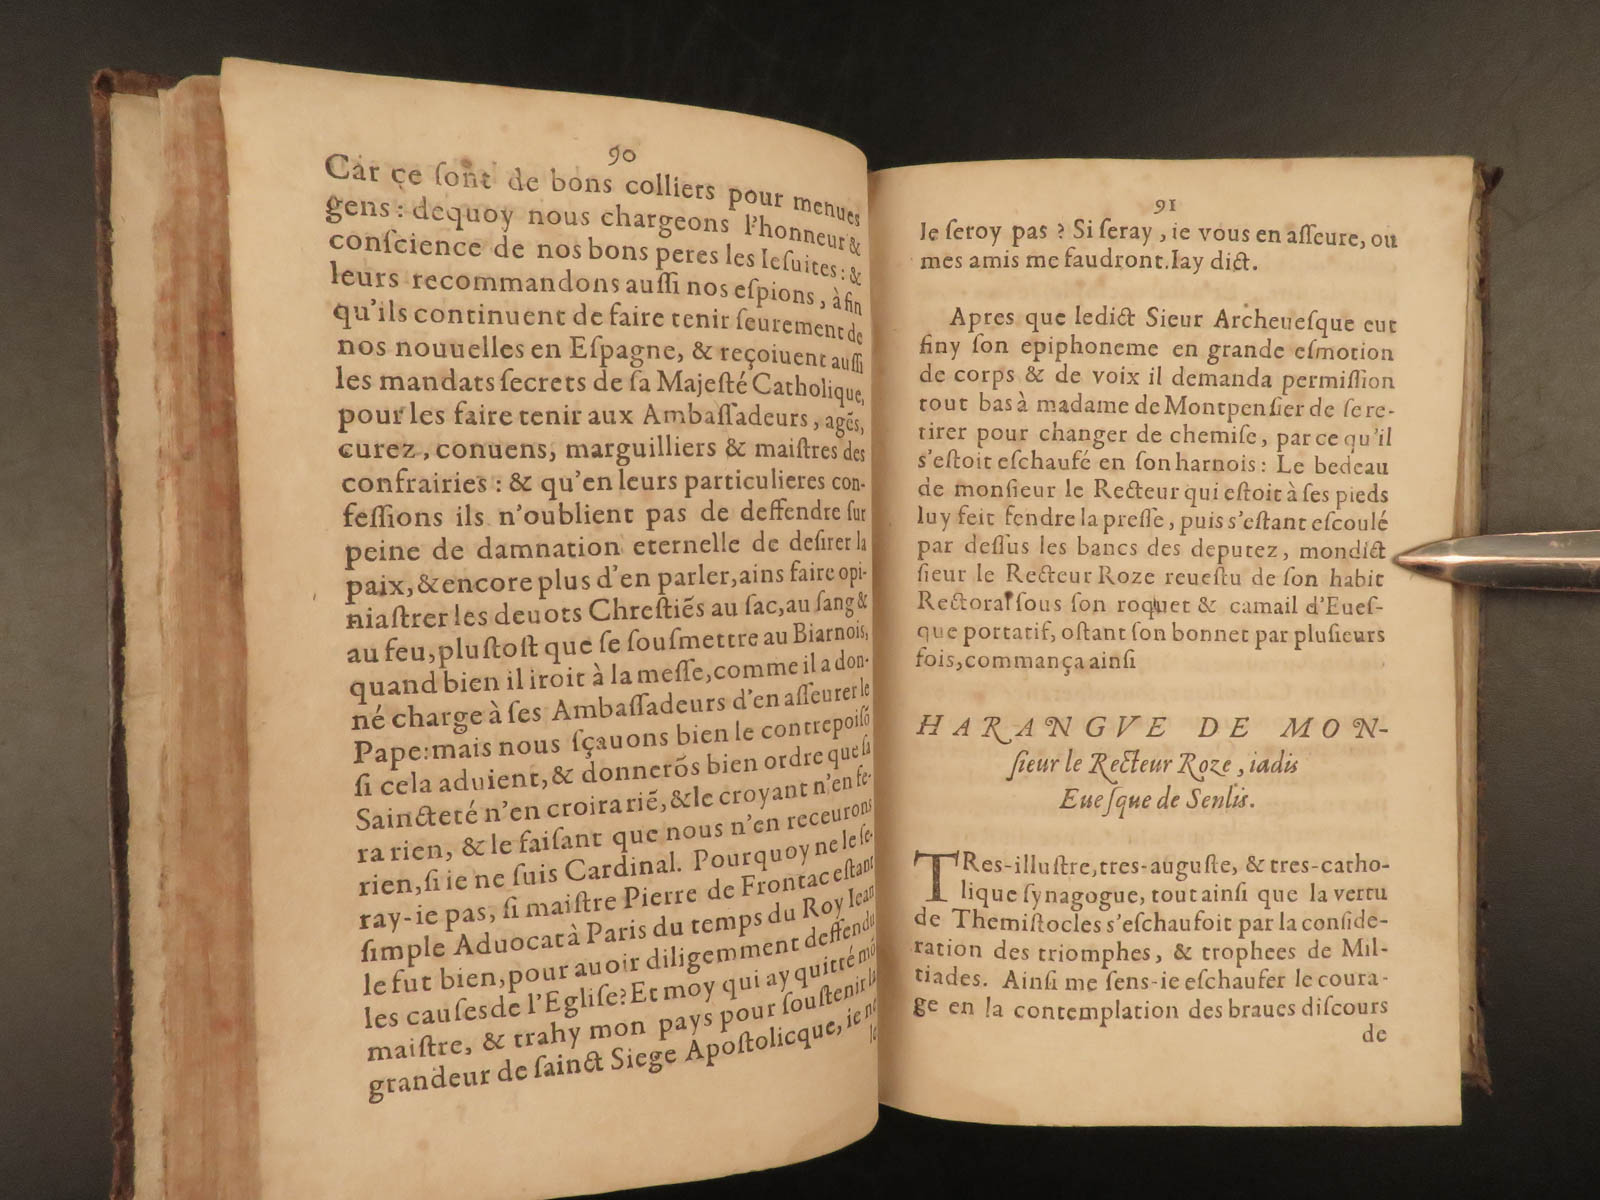 90
Car ce ſont de bons colliers pour menues
gens : dequoy nous chargeons l'honneur &
conſcience de nos bons peres les Ieſuites : &
leurs recommandons auſſi nos eſpions, à fin
qu'ils continuent de faire tenir ſeurement de
nos nouuelles en Eſpagne, & reçoiuent auſſi
les mandats ſecrets de ſa Majeſté Catholique,
pour les faire tenir aux Ambaſſadeurs, agẽs,
curez, conuens, marguilliers & maiſtres des
confrairies : & qu'en leurs particulieres con-
feſſions ils n'oublient pas de deffendre ſur
peine de damnation eternelle de deſirer la
paix, & encore plus d'en parler, ains faire opi-
niaſtrer les deuots Chreſtiẽs au ſac, au ſang &
au feu, pluſtoſt que ſe ſouſmettre au Biarnois,
quand bien il iroit à la meſſe, comme il a don-
né charge à ſes Ambaſſadeurs d'en aſſeurer le
Pape: mais nous ſçauons bien le contrepoiſõ
ſi cela aduient, & donnerõs bien ordre que ſa
Saincteté n'en croira riẽ, & le croyant n'en fe-
ra rien, & le faiſant que nous n'en receurons
rien, ſi ie ne ſuis Cardinal. Pourquoy ne le ſe-
ray-ie pas, ſi maiſtre Pierre de Frontac eſtant
ſimple Aduocat à Paris du temps du Roy Iean
le fut bien, pour auoir diligemment deffendu
les cauſes de l'Egliſe? Et moy qui ay quitté mõ
maiſtre, & trahy mon pays pour ſouſtenir la
grandeur de ſainct Siege Apoſtolicque, ie ne
le
91
le ſeroy pas ? Si ſeray, ie vous en aſſeure, ou
mes amis me faudront. Iay dict.
Apres que ledict Sieur Archeueſque eut
finy ſon epiphoneme en grande eſmotion
de corps & de voix il demanda permiſſion
tout bas à madame de Montpenſier de ſe re-
tirer pour changer de chemiſe, parce qu'il
s'eſtoit eſchaufé en ſon harnois : Le bedeau
de monſieur le Recteur qui eſtoit à ſes pieds
luy feit fendre la preſſe, puis s'eſtant eſcoulé
par deſſus les bancs des deputez, mondict
ſieur le Recteur Roze reueſtu de ſon habit
Rectoral ſous ſon roquet & camail d'Eueſ-
que portatif, oſtant ſon bonnet par pluſieurs
fois, commança ainſi
HARANGVE DE MON-
ſieur le Recteur Roze, iadis
Eueſque de Senlis.
TRes-illuſtre, tres-auguſte, & tres-catho-
lique ſynagogue, tout ainſi que la vertu
de Themiſtocles s'eſchaufoit par la conſide-
ration des triomphes, & trophees de Mil-
tiades. Ainſi me ſens-ie eſchaufer le coura-
ge en la contemplation des braues diſcours
de